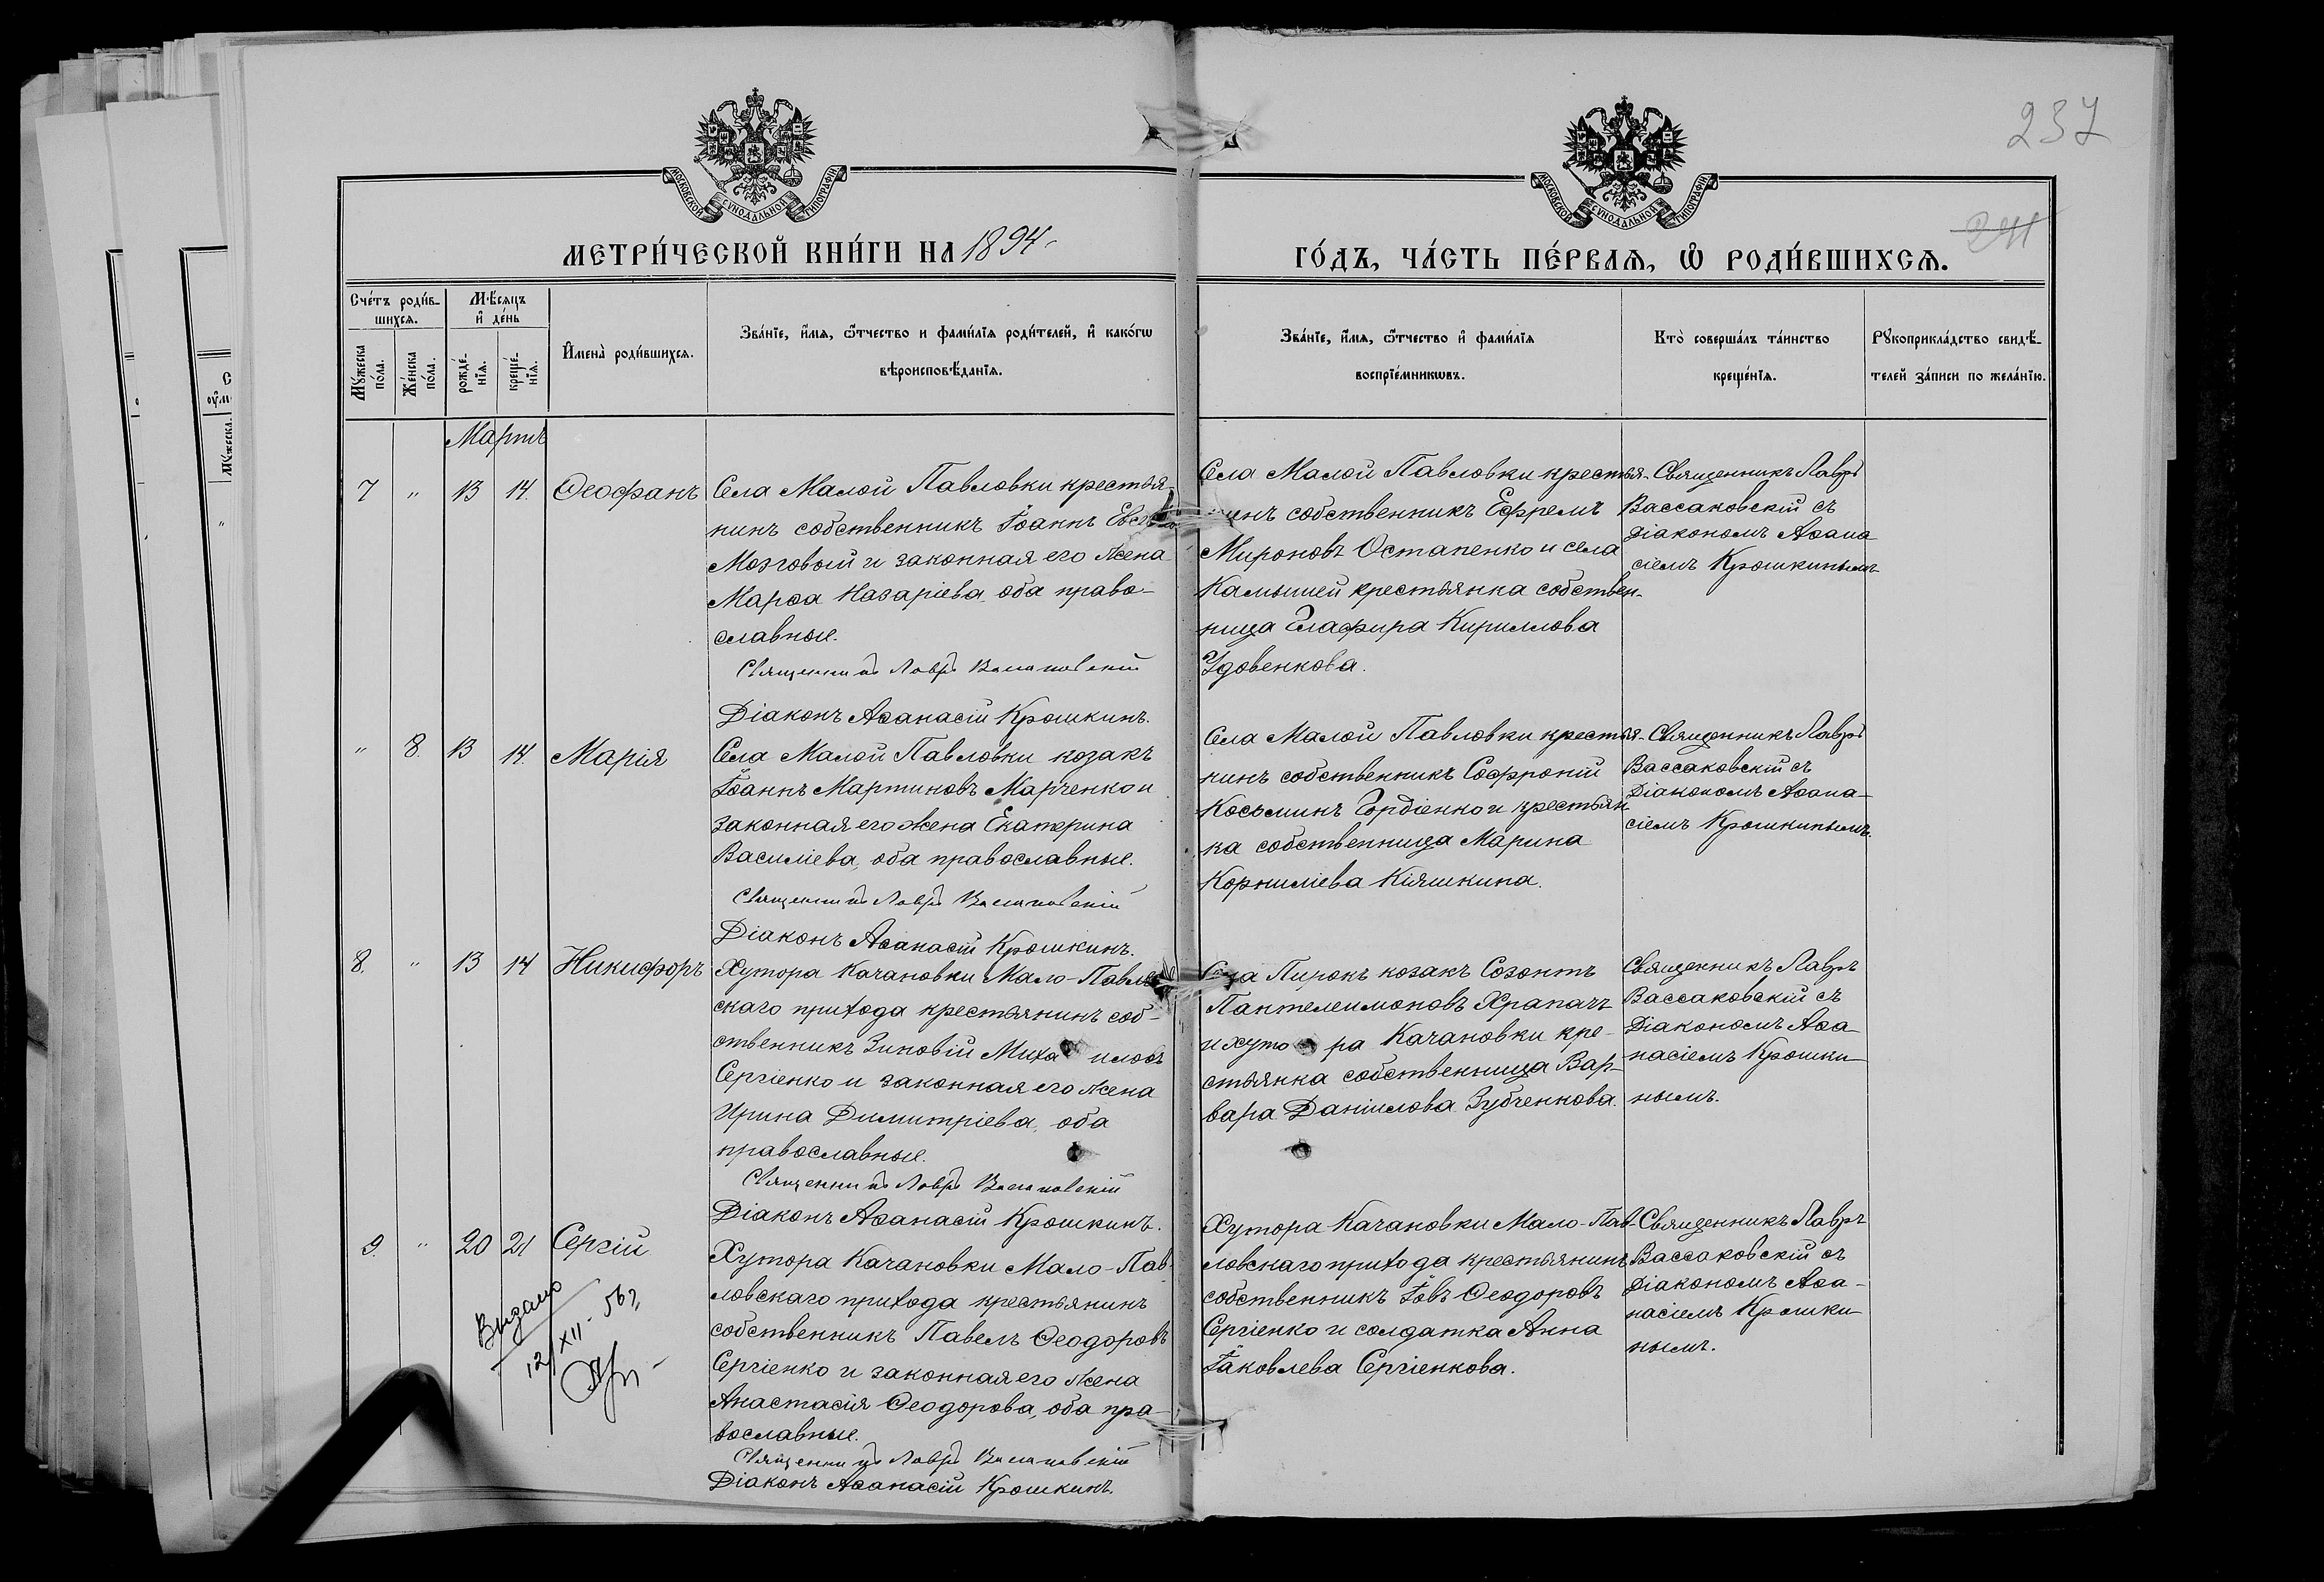 237
241
МОСКОВСКОЙ СѴНОДАЛЬНОЙ ТИПОГРАФІИ
МОСКОВСКОЙ СѴНОДАЛЬНОЙ ТИПОГРАФІИ
МЕТРИ́ЧЕСКОЙ КНИ́ГИ НА 1894
ГО́ДЪ, ЧА́СТЬ ПЕ́РВАѦ, Ѡ҆ РОДИ́ВШИХСѦ.
Сче́тъ роди́в-
шихсѧ.
Мꙋ́жеска по́ла.
Же́нска по́ла.
Мѣ́сѧцъ
и҆ де́нь
рожде́-
нїѧ.
креще́-
нїѧ.
И҆мена̀ роди́вшихсѧ.
Зва́нїе, и҆́мѧ, ѻ҆́тчество и фами́лїѧ роди́телей, и҆ како́гѡ
вѣроисповѣ́данїѧ.
Зва́нїе, и҆́мѧ, ѻ҆́тчество и҆ фами́лїѧ
воспрїе́мникѡвъ.
Кто̀ соверша́лъ та́инство
креще́нїѧ.
Рꙋкоприкла́дство свидѣ́-
телей за́писи по жела́нїю.
Мартъ
7 " 13 14. Ѳеофанъ
Села Малой Павловки крестья-
нинъ собственникъ Іоаннъ
Мозговый и законная его жена
Марѳа Назаріева, оба право-
славные.
Священникъ Лавръ Вассаковскій
Діаконъ Аѳанасій Крошкинъ.
Села Малой Павловки крестья-
нинъ собственникъ Ефремъ
Мироновъ Остапенко и села
Камышей крестьянка собствен-
ница Глафира Кириллова
Удовенкова.
Священникъ Лавръ
Вассаковскій съ
діакономъ Аѳана
сіемъ Крошкинымъ
" 8. 13 14. Марія
Села Малой Павловки козакъ
Іоаннъ Мартиновъ Марченко и
законная его жена Екатерина
Василіева, оба православные.
Священникъ Лавръ Вассаковскій
Діаконъ Аѳанасій Крошкинъ.
Села Малой Павловки крестья-
нинъ собственникъ Софроній
Косьминъ Гордіенко и крестьян
ка собственница Марина
Корниліева Кіяшкина.
Священникъ Лавръ
Вассаковскій съ
Діакономъ Аѳана-
сіемъ Крошкинымъ.
8. " 13 14 Никифоръ
Хутора Качановки Мало-Павлов
скаго прихода крестьянинъ соб-
ственникъ Зиновій Миха иловъ
Сергіенко и законная его жена
Ирина Димитріева, оба
православные.
Священникъ Лавръ Вассаковскій
Діаконъ Аѳанасій Крошкинъ.
Села Пирокъ козакъ Созонтъ
Пантелеимоновъ Храпачъ
и хуто ра Качановки кре-
стьянка собственница Вар-
вара Даніилова Зубченкова.
Священникъ Лавръ
Вассаковскій съ
Діакономъ Аѳа
насіемъ Крошки
нымъ.
9. " 20 21 Сергій
Выдано
12/XII-56г.
Хутора Качановки Мало-Пав-
ловскаго прихода крестьянинъ
собственникъ Павелъ Ѳеодоровъ
Сергіенко и законная его жена
Анастасія Ѳеодорова, оба пра-
вославные.
Священникъ Лавръ Вассаковскій
Діаконъ Аѳанасій Крошкинъ.
Хутора Качановки Мало-Пав-
ловскаго прихода крестьянинъ
собственникъ Іовъ Ѳеодоровъ
Сергіенко и солдатка Анна
Іаковлева Сергіенкова.
Священникъ Лавръ
Вассаковскій съ
Діакономъ Аѳа-
насіемъ Крошки
нымъ.